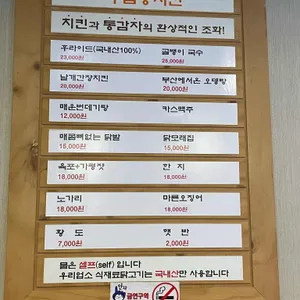 치킨과 통감자의 환상적인 조화!
후라이드(국내산100%) 골뱅이 국수
23,000원 25,000원
날개간장치킨 부산에서온 오뎅탕
20,000원 20,000원
매운번데기탕 카스맥주
12,000원
매콤뼈없는 닭발 닭모래집
15,000원 15,000원
육포+가평잣 한치
18,000원 18,000원
노가리 마른오징어
18,000원 18,000원
황도 햇반
7,000원 2,000원
물은 셀프(self) 입니다
우리업소 식재료닭고기는 국내산만 사용합니다
금연구역